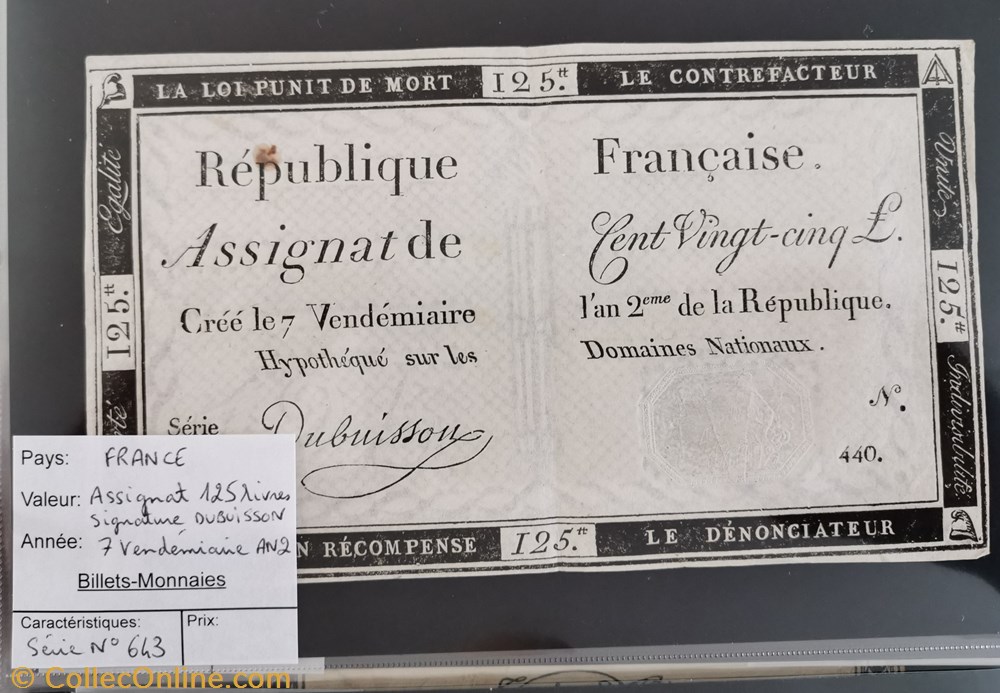 LA LOI PUNIT DE MORT 125.tt LE CONTREFACTEUR
Egalité
Unité
République Française.
Assignat de Cent Vingt-cinq £.
Créé le 7 Vendémiaire l'an 2eme de la République.
Hypothéqué sur les Domaines Nationaux.
125.tt
125.tt
Indivisibilité
Série Dubuisson
N.
440.
RÉCOMPENSE 125.tt LE DÉNONCIATEUR
Pays: FRANCE
Valeur: Assignat 125 livres
Signature DUBUISSON
Année: 7 Vendémiaire AN2
Billets-Monnaies
Caractéristiques: Prix:
Série N° 643
© CollecOnline.com